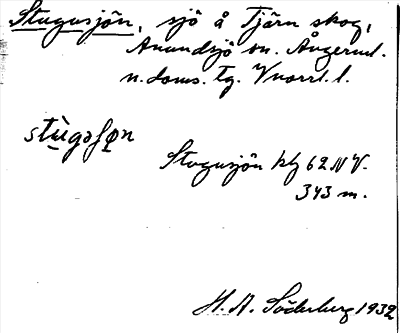 Stugusjön, sjö å Tjärn skog,
Anundsjö sn. Ångerml.
n. doms. tg. Vnorrl. l.
stùgəʃo̤n
Stugusjön kbl 62 NV.
343 m.
H. A. Söderberg 1932